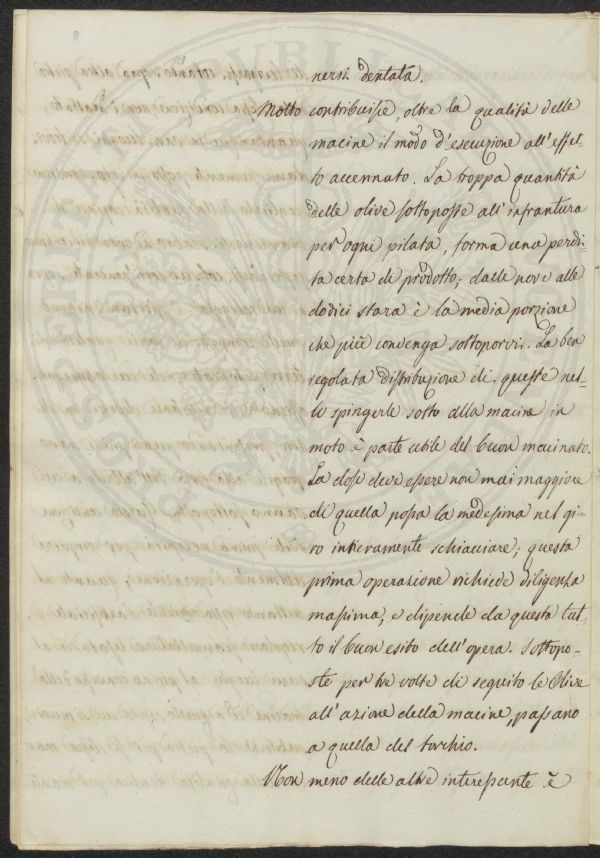 nersi dentata.
Molto contribuisse, oltre la qualità delle
macine il modo d'esecuzione all'effet-
to accennato. La troppa quantità
delle olive sottoposte all'infrantura
per ogni pilata, forma una perdi-
ta certa di prodotto; dalle nove alle
dodici stara è la media porzione
che più convenga sottoporvi. La ben
regolata distribuzione di queste nel-
lo spingerle sotto alla macine in
moto è parte utile del buon macinato.
La dose deve essere non mai maggiore
di quella possa la medesima nel gi-
ro intieramente schiacciare; questa
prima operazione richiede diligenza
massima, e dipende da questa tut-
to il buon esito dell'opera. Sottopo-
ste per tre volte di seguito le Olive
all'azione della macine, passano
a quella del torchio.
Non meno delle altre interessante è